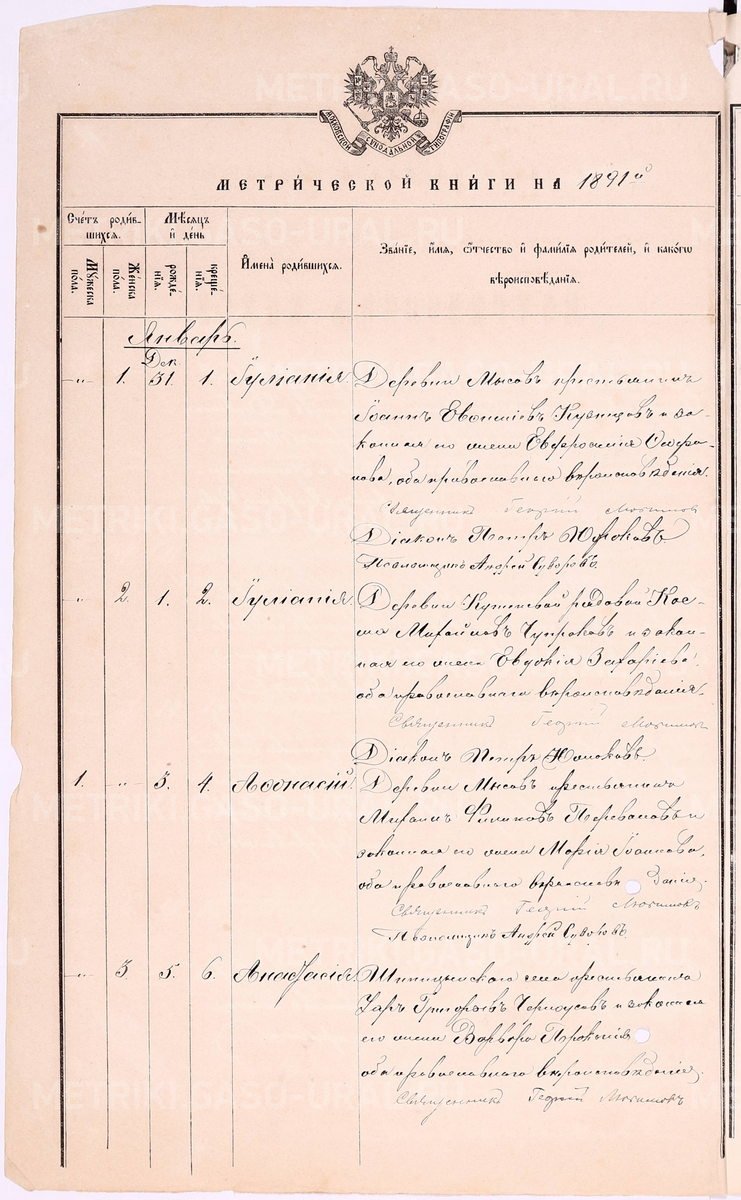 МОСКОВСКОЙ СУНОДАЛЬНОЙ ТИПОГРАФІИ
МЕТРИ́ЧЕСКОЙ КНИ́ГИ НА 1891й
Сче́тъ роди́в-
шихся.
Мѣ́сяцъ
и҆ де́нь
И҆мена̀ роди́вшихся.
Зва́нїе, и҆́мя, ѻ҆́тчество и҆ фами́лїя роди́телей, и҆ како́гѡ
вѣроисповѣ́данїя.
Му́жеска
по́ла.
Же́нска
по́ла.
рожде́-
нїя.
креще́-
нїя.
Январь.
Дек.
„ 1. 31. 1. Іуліанія. Деревни Мысовъ крестьянинъ
Іоаннъ Евѳиміевъ Кузнецовъ и за-
конная его жена Евфросинія Ѳеофа-
нова, оба православнаго вѣроисповѣданія.
Священникъ Георгій
Діаконъ Петръ
Псаломщикъ Андрей Суворовъ
„ 2. 1. 2. Іуліанія. Деревни рядовой Кос-
ма Михайловъ Чупраковъ и закон-
ная его жена Евдокія Захаріева,
оба православнаго вѣроисповѣданія.
Священникъ Георгій
Діаконъ Петръ
1. „ 3. 4. Аѳонасій. Деревни Мысовъ крестьянинъ
Михаилъ Филиповъ и
законная его жена Марія Іоаннова,
оба православнаго вѣроисповѣданія.
Священникъ Георгій
Псаломщикъ Андрей Суворовъ
„ 3 5. 6. Анастасія. села крестьянинъ
Уаръ Григорьевъ Черноусовъ и законная
его жена Варвара Прокопіева
оба православнаго вѣроисповѣданія.
Священникъ Георгій
METRIKI.GASO-URAL.RU